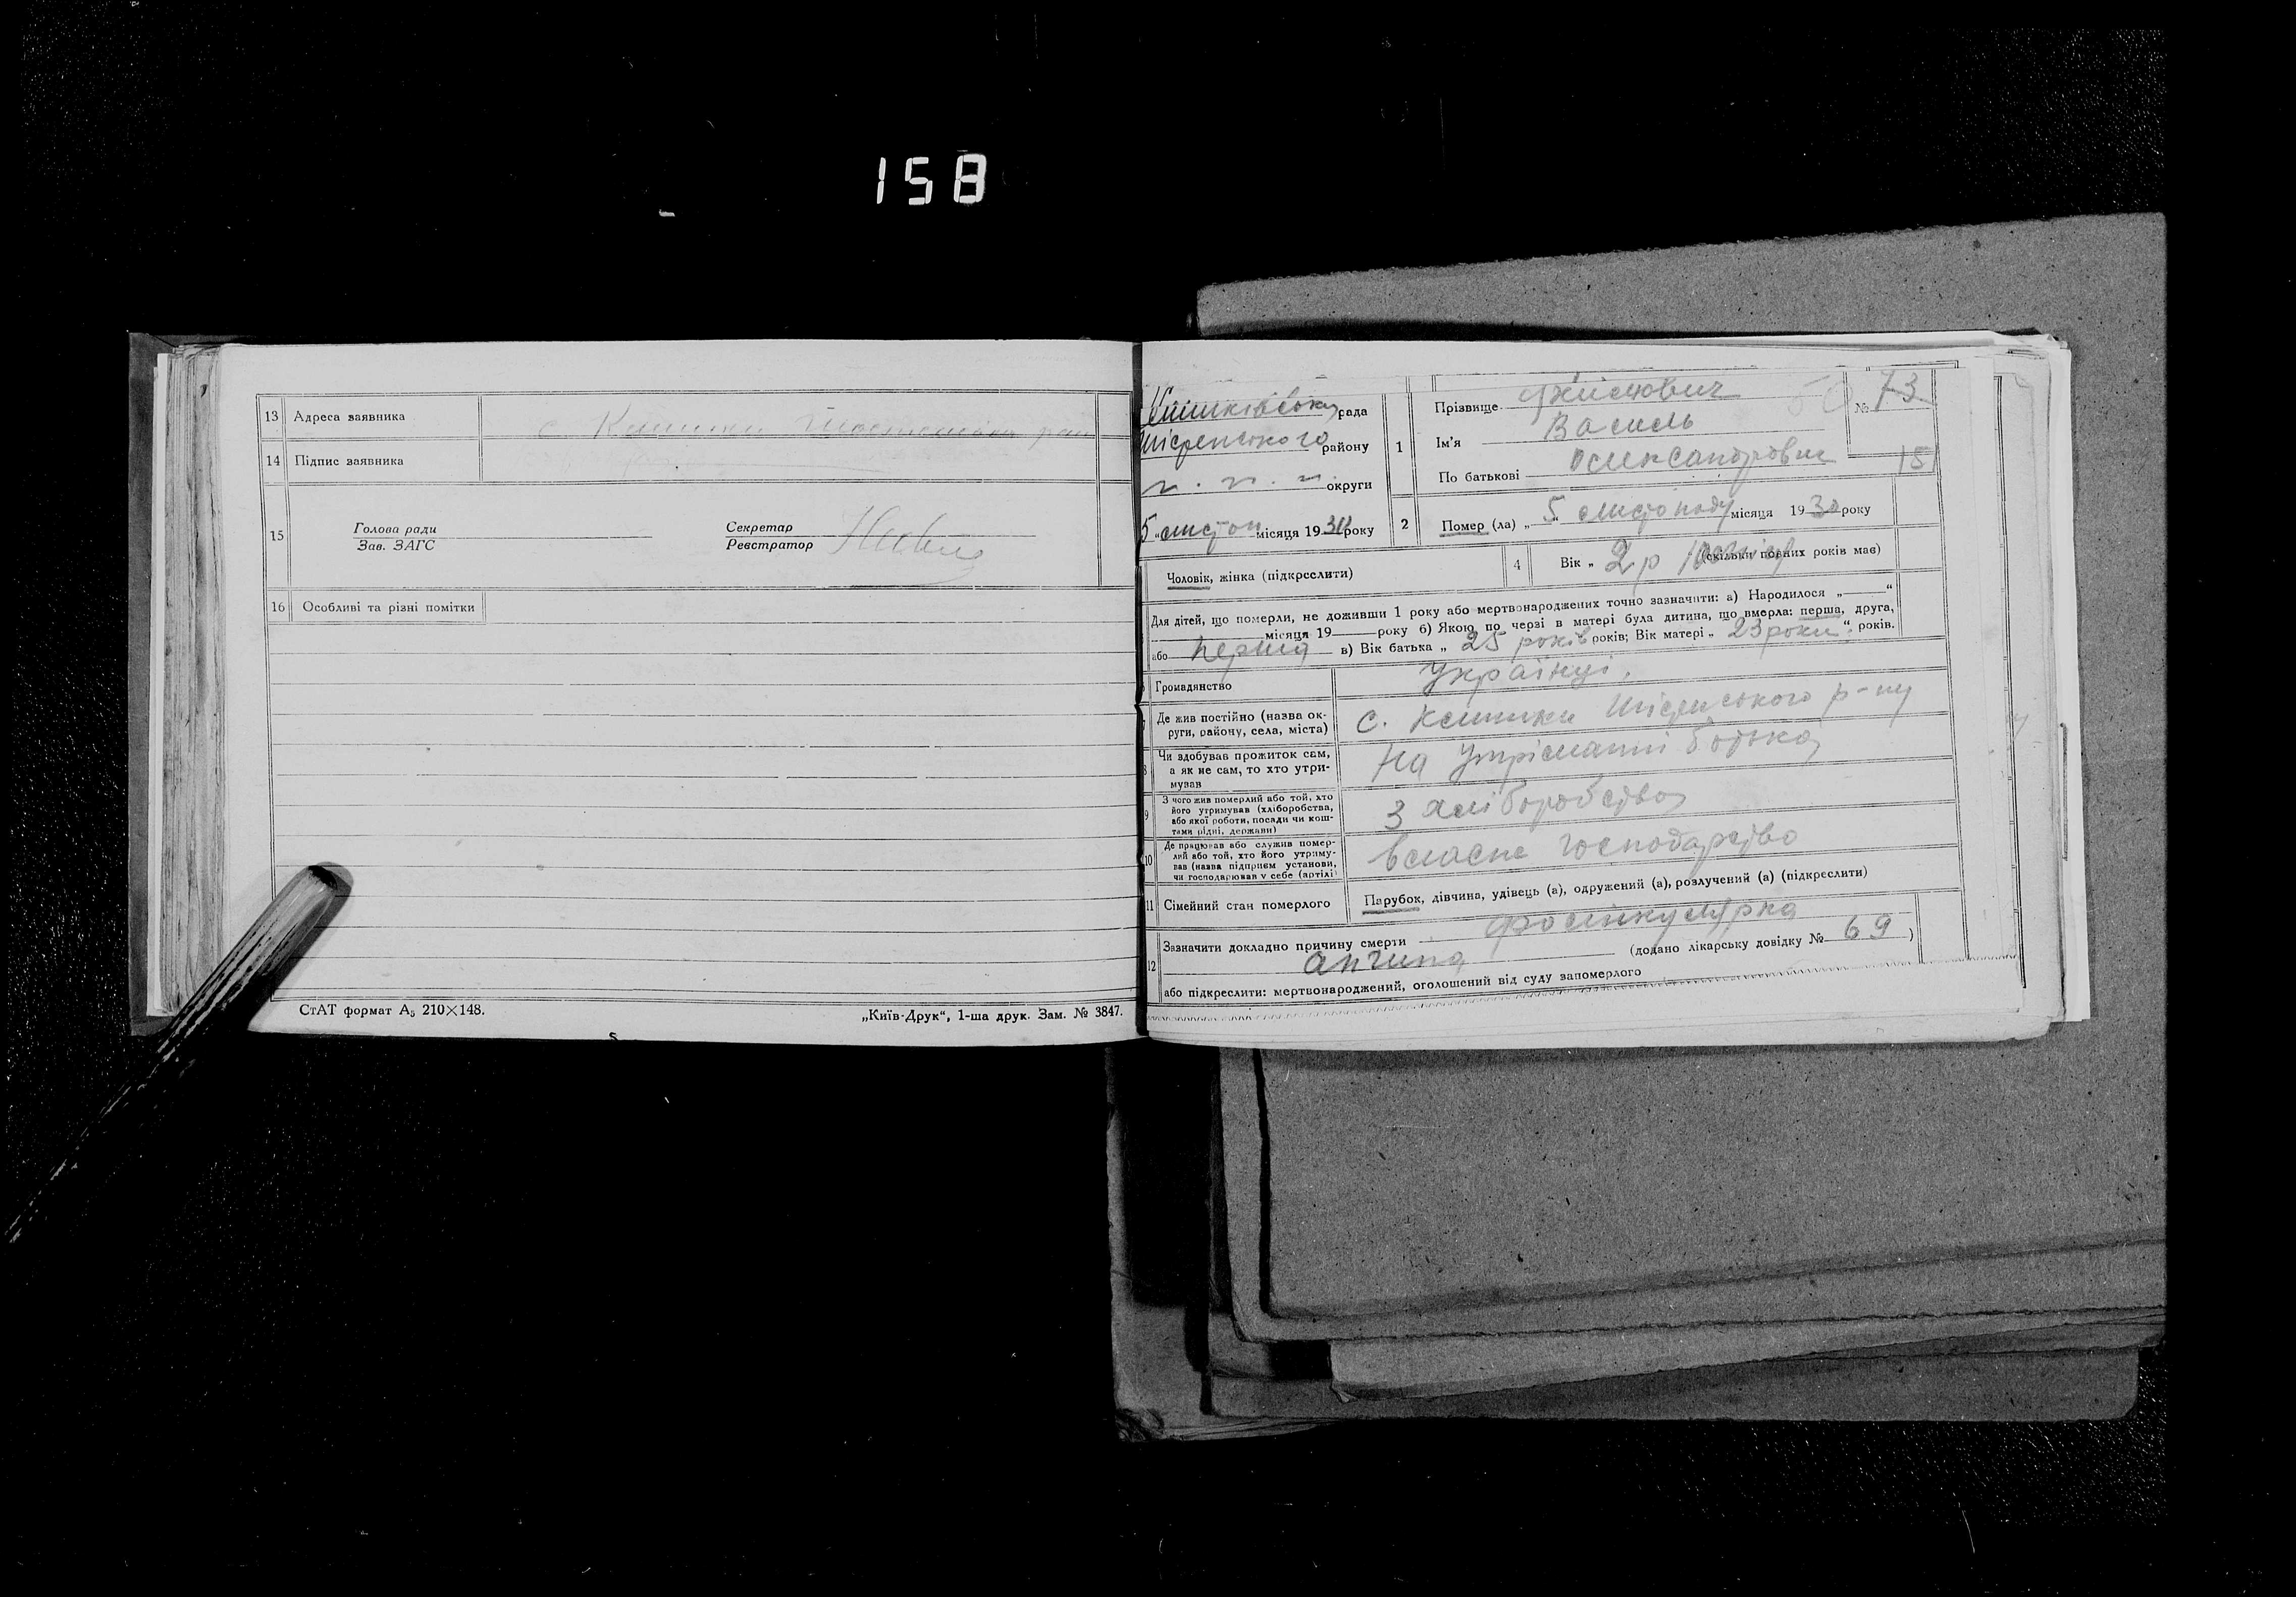 158
13 Адреса заявника с Клишки
14 Підпис заявника
15 Голова ради
Зав. ЗАГС
Секретар
Реєстратор
16 Особливі та різні помітки
СтАТ формат А₅ 210×148.
„Київ-Друк“, 1-ша друк. Зам. № 3847.
Клишківська рада
району
округи
5 „листоп місяця 1930 року
1 Прізвище
Ім'я Василь
По батькові Олександрович
№ 73
15
2 Помер (ла) „ 5 “ листопаду місяця 1930 року
Чоловік, жінка (підкреслити)
4 Вік „ 2 р 10 (скільки повних років має)
Для дітей, що померли, не доживши 1 року або мертвонароджених точно зазначити: а) Народилося „ “
місяця 19 року б) Якою по черзі в матері була дитина, що вмерла: перша, друга,
або перша в) Вік батька „ 25 років років; Вік матері „ 23 роки “ років.
Громадянство Українці.
7 Де жив постійно (назва ок-
руги, району, села, міста) с. Клишки р-ну
8 Чи здобував прожиток сам,
а як не сам, то хто утри-
мував На утріманні батька
9 З чого жив померлий або той, хто
його утримував (хліборобства,
або якої роботи, посади чи кош-
тами рідні, держави) З хліборобства
10 Де працював або служив помер-
лий або той, хто його утриму-
вав (назва підприєм установи,
чи господарював у себе (артілі) власне господарство
11 Сімейний стан померлого Парубок, дівчина, удівець (а), одружений (а), розлучений (а) (підкреслити)
12 Зазначити докладно причину смерти
ангина (додано лікарську довідку № 69)
або підкреслити: мертвонароджений, оголошений від суду запомерлого